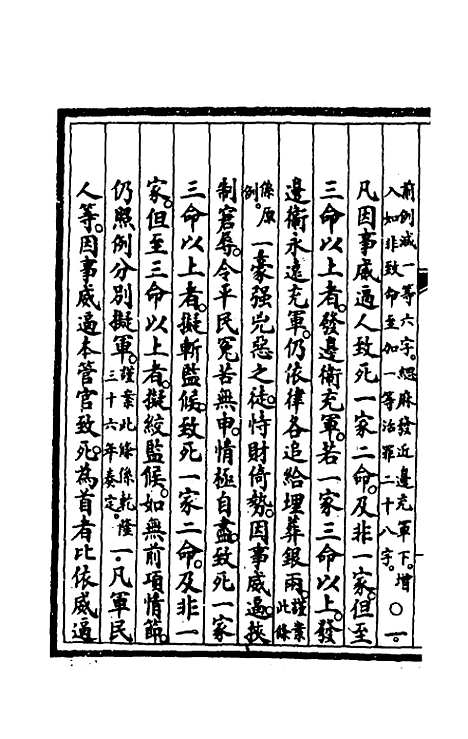 前例减一等六字。緦麻發近邊充軍下。增入如非致命至加一等治罪二十八字。○一。
凡因事威逼人致死一家二命。及非一家。但至
三命以上者。發邊衛充軍。若一家三命以上。發
邊衛永遠充軍。仍依律各追給埋葬銀兩。謹案此條
係原例。一豪强兇惡之徒。恃財倚勢。因事威逼。挾
制窘辱。令平民冤苦無申。情極自盡。致死一家
三命以上者。擬斬監候。致死一家二命。及非一
家。但至三命以上者。擬絞監候。如無前項情節。
仍照例分別擬軍。謹案此條係乾隆三十六年奏定。一。凡軍民
人等。因事威逼本管官致死。為首者比依威逼